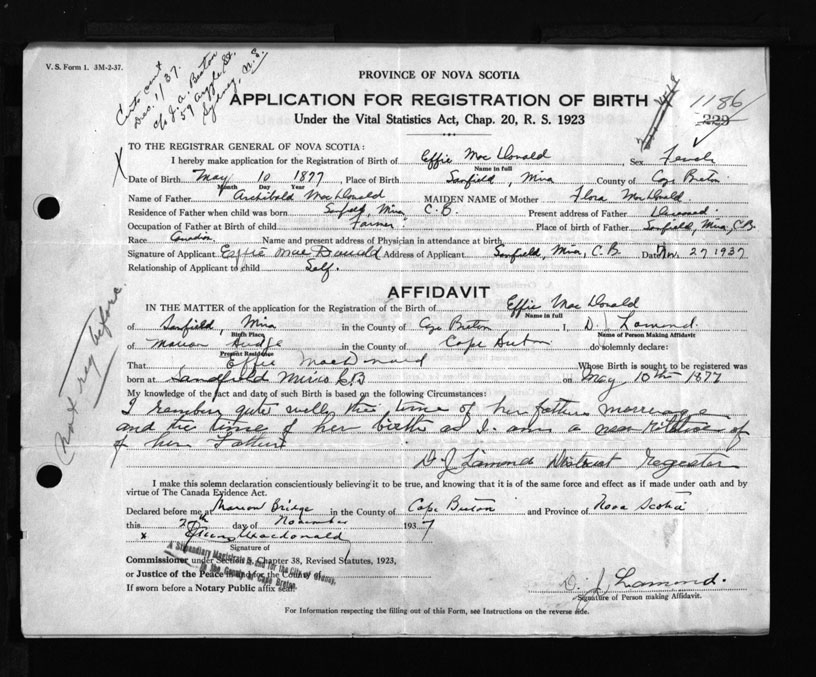 V. S. Form 1. 3M-2-37.
Certo sent
Dec. 1/37.
c/o J. A. Beaton
59 Argyle St.
Sydney, N. S.
PROVINCE OF NOVA SCOTIA
APPLICATION FOR REGISTRATION OF BIRTH
Under the Vital Statistics Act, Chap. 20, R. S. 1923
1186
223
TO THE REGISTRAR GENERAL OF NOVA SCOTIA:
X I hereby make application for the Registration of Birth of Effie Mac Donald Sex Female
Name in full
Date of Birth May 10 1877, Place of Birth Sanfield, Mira County of Cape Breton
Month Day Year
Name of Father Archibald MacDonald MAIDEN NAME of Mother Flora MacDonald
Residence of Father when child was born Sanfield, Mira C. B. Present address of Father Deceased
Occupation of Father at Birth of child Farmer Place of birth of Father Sanfield, Mira, C.B.
Race Canadian Name and present address of Physician in attendance at birth
Signature of Applicant Effie MacDonald Address of Applicant Sanfield, Mira, C.B. Date Nov. 27 1937
Relationship of Applicant to child Self.
Not reg before
AFFIDAVIT
IN THE MATTER of the application for the Registration of the Birth of Effie Mac Donald
Name in full
of Sanfield, Mira in the County of Cape Breton I, D. J. Lamond.
Birth Place Name of Person Making Affidavit
of Marion Bridge in the County of Cape Breton do solemnly declare:
Present Residence
That Effie MacDonald Whose Birth is sought to be registered was
born at Sandfield Mira C B on May 10th 1877
My knowledge of the fact and date of such Birth is based on the following Circumstances:
I remember quite well the time of her fathers marriage
and the time of her birth as I am a near relative of
of her Father
D. J Lamond District Register
I make this solemn declaration conscientiously believing it to be true, and knowing that it is of the same force and effect as if made under oath and by
virtue of The Canada Evidence Act.
Declared before me at Marion Bridge in the County of Cape Breton and Province of Nova Scotia
this day of November 1937
x Macdonald
Signature of
A Stipendiary Magistrate in and for the City of Sydney,
in the County of Cape Breton.
Commissioner under Section 3, Chapter 38, Revised Statutes, 1923,
or Justice of the Peace in and for the County of
If sworn before a Notary Public affix seal.
D. J Lamond.
Signature of Person making Affidavit.
For Information respecting the filling out of this Form, see Instructions on the reverse side.